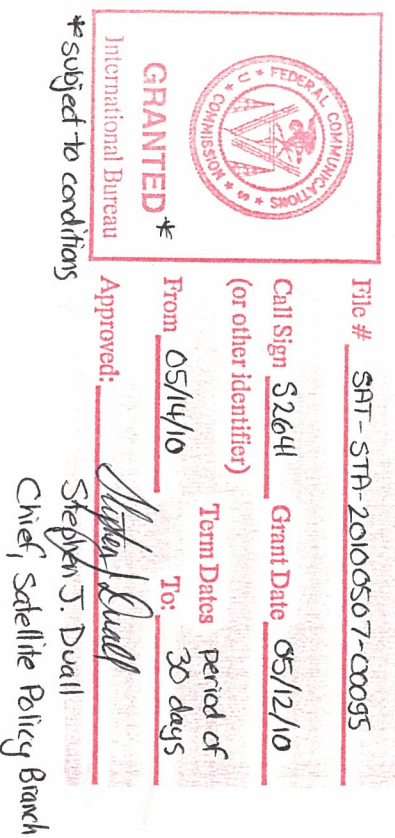 FEDERAL COMMUNICATIONS COMMISSION * U * S *
GRANTED*
International Bureau
*subject to conditions
File # SAT-STA-20100507-00095
Call Sign S2641 Grant Date 05/12/10
(or other identifier)
Term Dates period of
From 05/14/10 To: 30 days
Approved: Stephen J Duall
Stephen J. Duall
Chief, Satellite Policy Branch